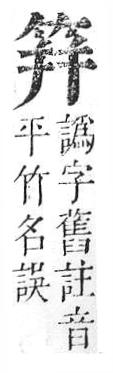 譌字舊註音
平竹名誤